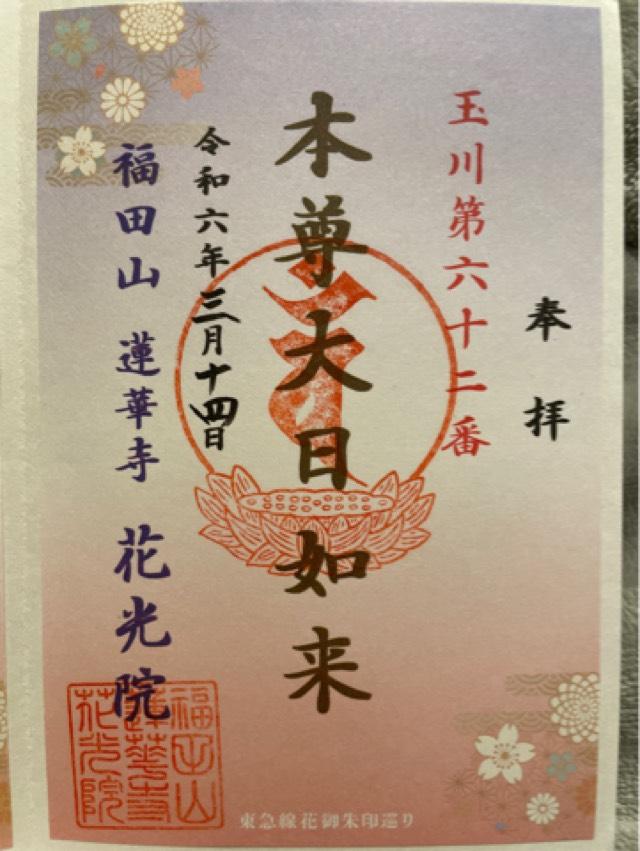 奉拝
玉川第六十二番
本尊大日如来
令和六年三月十四日
福田山 蓮華寺 花光院
福田山
蓮華寺
花光院
東急線花御朱印巡り